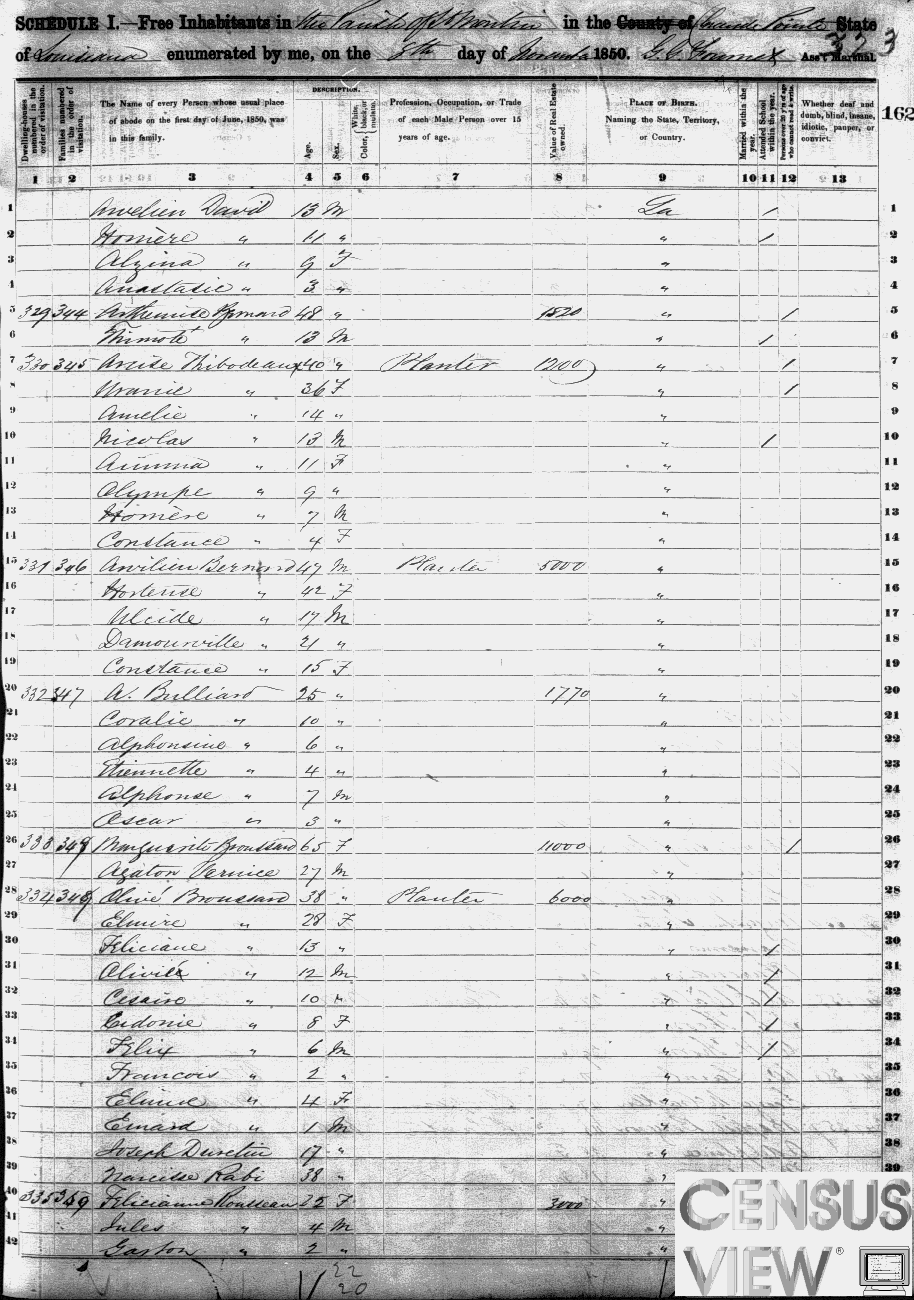 SCHEDULE I.—Free Inhabitants in the Parish of St Martin in the County of Grande Pointe State
of Louisiana enumerated by me, on the 8th day of November 1850. Ass't Marshal.
323
162
Dwelling-houses numbered in the order of visitation.
Families numbered in the order of visitation.
The Name of every Person whose usual place of abode on the first day of June, 1850, was in this family.
DESCRIPTION.
Age.
Sex.
Color, White, black, or mulatto.
Profession, Occupation, or Trade of each Male Person over 15 years of age.
Value of Real Estate owned.
PLACE OF BIRTH. Naming the State, Territory, or Country.
Married within the year.
Attended School within the year.
Persons over 20 y'rs of age who cannot read & write.
Whether deaf and dumb, blind, insane, idiotic, pauper, or convict.
1 2 3 4 5 6 7 8 9 10 11 12 13
1 Aurelien David 13 M La / 1
2 Homère " 11 " " / 2
3 Alzina " 9 F " 3
4 Anastasie " 3 " " 4
5 329 344 Arthemise Bernard 48 " 1520 " / 5
6 Thimoté " 13 M " / 6
7 330 345 Arcise Thibodeaux 40 " Planter 1200 " / 7
8 Uranie " 36 F " / 8
9 Amelie " 14 " " 9
10 Nicolas " 13 M " / 10
11 " 11 F " 11
12 Olympe " 9 " " 12
13 Homère " 7 M " 13
14 Constance " 4 F " 14
15 331 346 Aurelien Bernard 47 M Planter 5000 " 15
16 Hortense " 42 F " 16
17 Ulcide " 17 M " 17
18 Damourville " 21 " " 18
19 Constance " 15 F " 19
20 332 347 A. Bulliard 25 " 1770 " 20
21 Coralie " 10 " " 21
22 Alphonsine " 6 " " 22
23 Etiennette " 4 " " 23
24 Alphonse " 7 M " 24
25 Oscar " 3 " " 25
26 333 348 Marguerite Broussard 65 F 11000 " / 26
27 Agaton Vernice 27 M " 27
28 334 348 Olivé Broussard 38 " Planter 6000 " 28
29 Elmire " 28 F " 29
30 Feliciane " 13 " " / 30
31 Olivié " 12 M " / 31
32 Cesaire " 10 " " / 32
33 Cidonie " 8 F " / 33
34 Felix " 6 M " / 34
35 Francois " 2 " " 35
36 Elmire " 4 F " 36
37 Emard " 1 M " 37
38 Joseph 17 " " 38
39 Narcisse Rabi 38 " " 39
40 335 349 Felicianne Rousseau 25 F 3000 "
41 Jules " 4 M "
42 Gaston " 2 " "
22
20
CENSUS
VIEW®